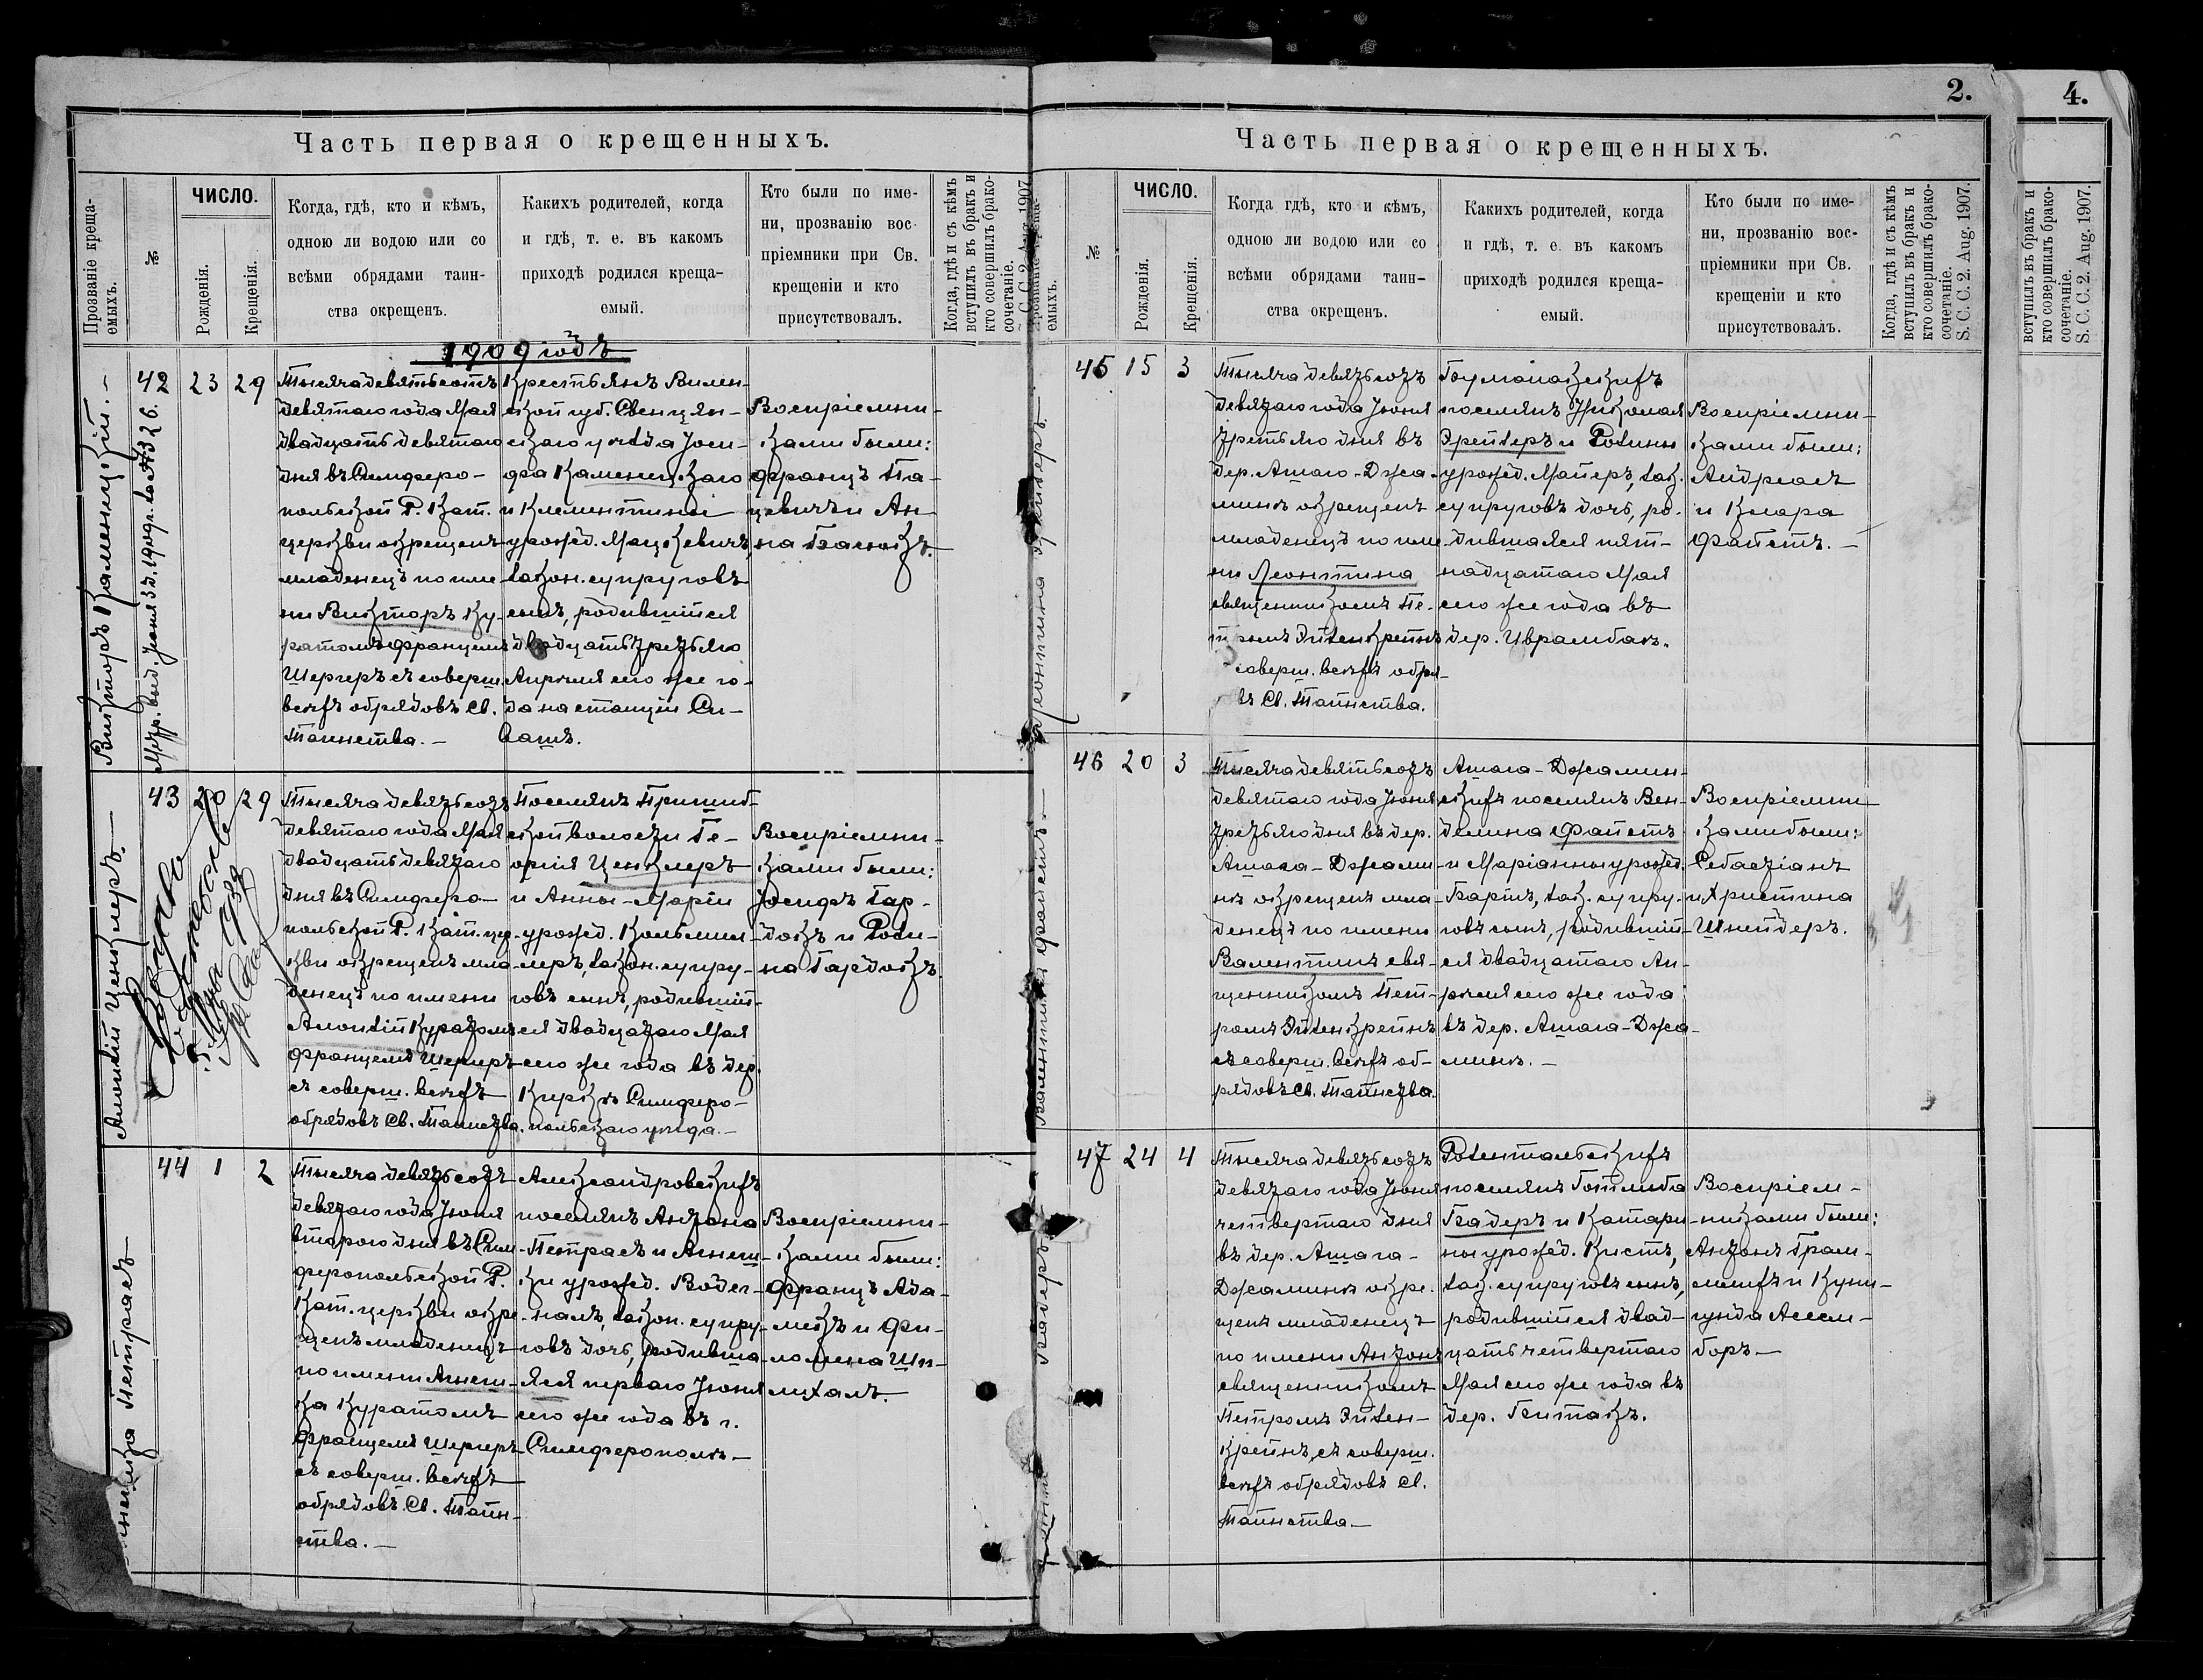 Часть первая о крещенныхъ.
Прозваніе креща-
емыхъ.
№
ЧИСЛО.
Рожденія.
Крещенія.
Когда, гдѣ, кто и кѣмъ,
одною ли водою или со
всѣми обрядами таин-
ства окрещенъ.
Какихъ родителей, когда
и гдѣ, т. е. въ какомъ
приходѣ родился креща-
емый.
Кто были по име-
ни, прозванію вос-
пріемники при Св.
крещеніи и кто
присутствовалъ.
Когда, гдѣ и съ кѣмъ
вступилъ въ бракъ и
кто совершилъ брако-
сочетаніе.
1909 годъ
Викторъ Каменицкій.—
42
23
29
Тысяча девятьсотъ
девятаго года Мая
двадцать девятаго
дня въ Симферо-
польской Р. Кат.
церкви окрещенъ
младенецъ по име-
ни Викторъ Ку-
ратомъ Францемъ
Шергеръ съ соверш.
всѣхъ обрядовъ Св.
Таинства.—
Крестьянъ Вилен-
ской губ. Свенцян-
скаго уѣзда Іоси-
фа Каменицкаго
и Клементины
урожд. Мацкевичъ,
закон. супруговъ
сынъ, родившійся
двадцать третьяго
Апрѣля сего же го-
да на станціи Си-
вашъ.
Воспріемни-
ками были:
Францъ Па-
цевичъ и Ан-
на Банюкъ.
Алоизій Ценклеръ.—
43
20
29
Тысяча девятьсотъ
девятаго года Мая
двадцать девятаго
дня въ Симферо-
польской Р. Кат. цер-
кви окрещенъ мла-
денецъ по имени
Алоизій Куратомъ
Францемъ Шергеръ
съ соверш. всѣхъ
обрядовъ Св. Таинства.
Поселянъ Пришиб-
ской волости Ге-
оргія Ценклеръ
и Анны-Маріи
урожд. Кольмил-
леръ, закон. супру-
говъ сынъ, родившій-
ся двадцатаго Мая
сего же года въ дер.
Киркъ Симферо-
польскаго уѣзда.—
Воспріемни-
ками были:
Іосифъ Гар-
докъ и Рози-
на Гардокъ.
Петрасъ
44
1
2
Тысяча девятьсотъ
девятаго года Іюня
втораго дня въ Сим-
феропольской Р.
Кат. церкви окре-
щенъ младенецъ
по имени Агнеш-
ка Куратомъ
Францемъ Шергеръ
съ соверш. всѣхъ
обрядовъ Св. Таин-
ства.—
Александровскихъ
поселянъ Антона
Петрасъ и Агнеш-
ки урожд. Водег-
налъ, закон. супру-
говъ дочь, родивша-
яся перваго Іюня
сего же года въ г.
Симферополѣ.—
Воспріемни-
ками были:
Францъ Ада-
мекъ и Фи-
ломена Ши-
михалъ.
2.
Часть первая о крещенныхъ.
№
ЧИСЛО.
Рожденія.
Крещенія.
Когда гдѣ, кто и кѣмъ,
одною ли водою или со
всѣми обрядами таин-
ства окрещенъ.
Какихъ родителей, когда
и гдѣ, т. е. въ какомъ
приходѣ родился креща-
емый.
Кто были по име-
ни, прозванію вос-
пріемники при Св.
крещеніи и кто
присутствовалъ.
Когда, гдѣ и съ кѣмъ
вступилъ въ бракъ и
кто совершилъ брако-
сочетаніе.
S. C. C. 2. Aug. 1907.
45
15
3
Тысяча девятьсотъ
девятаго года Іюня
третьяго дня въ
дер. Ашаго-Джа-
минъ окрещенъ
младенецъ по име-
ни Леонтина
священникомъ Пе-
тромъ Эйзенкрейнъ
соверш. всѣхъ обря-
въ Св. Таинства.
поселянъ Николая
Эрейтеръ и Розины
урожд. Майеръ, зак.
супруговъ дочь, ро-
дившаяся пят-
надцатаго Мая
сего же года въ
дер. Ибрамбакъ.
Воспріемни-
ками были:
Андреасъ
и Клара
Файстъ.—
Валентинъ Файстъ—
46
20
3
Тысяча девятьсотъ
девятаго года Іюня
третьяго дня въ дер.
Ашага-Джами-
нъ окрещенъ мла-
денецъ по имени
Валентинъ свя-
щенникомъ Пет-
ромъ Эйзенкрейнъ
съ соверш. всѣхъ об-
рядовъ Св. Таинства.
Ашага-Джамин-
скихъ поселянъ Вен-
делина Файстъ
и Маріанны урожд.
Бартъ, зак. супру-
говъ сынъ, родившій-
ся двадцатаго Ап-
рѣля сего же года
въ дер. Ашага-Джа-
минъ.—
Воспріемни-
ками были:
Себастіанъ
и Христина
Шнейдеръ.
Бадеръ
47
24
4
Тысяча девятьсотъ
девятаго года Іюня
четвертаго дня
въ дер. Ашага-
Джаминъ окре-
щенъ младенецъ
по имени Антонъ
священникомъ
Петромъ Эйзен-
крейнъ, съ соверш.
всѣхъ обрядовъ Св.
Таинства.—
Розентальскихъ
поселянъ Готлиба
Бадеръ и Катари-
ны урожд. Кистъ,
зак. супруговъ сынъ,
родившійся двад-
цать четвертаго
Мая сего же года въ
дер. Битакъ.
Воспріем-
никами были:
Антонъ Грам-
лихъ и Куни-
гунда Ассам-
боръ—
4.
вступилъ въ бракъ и
кто совершилъ брако-
сочетаніе.
S. C. C. 2. Aug. 1907.